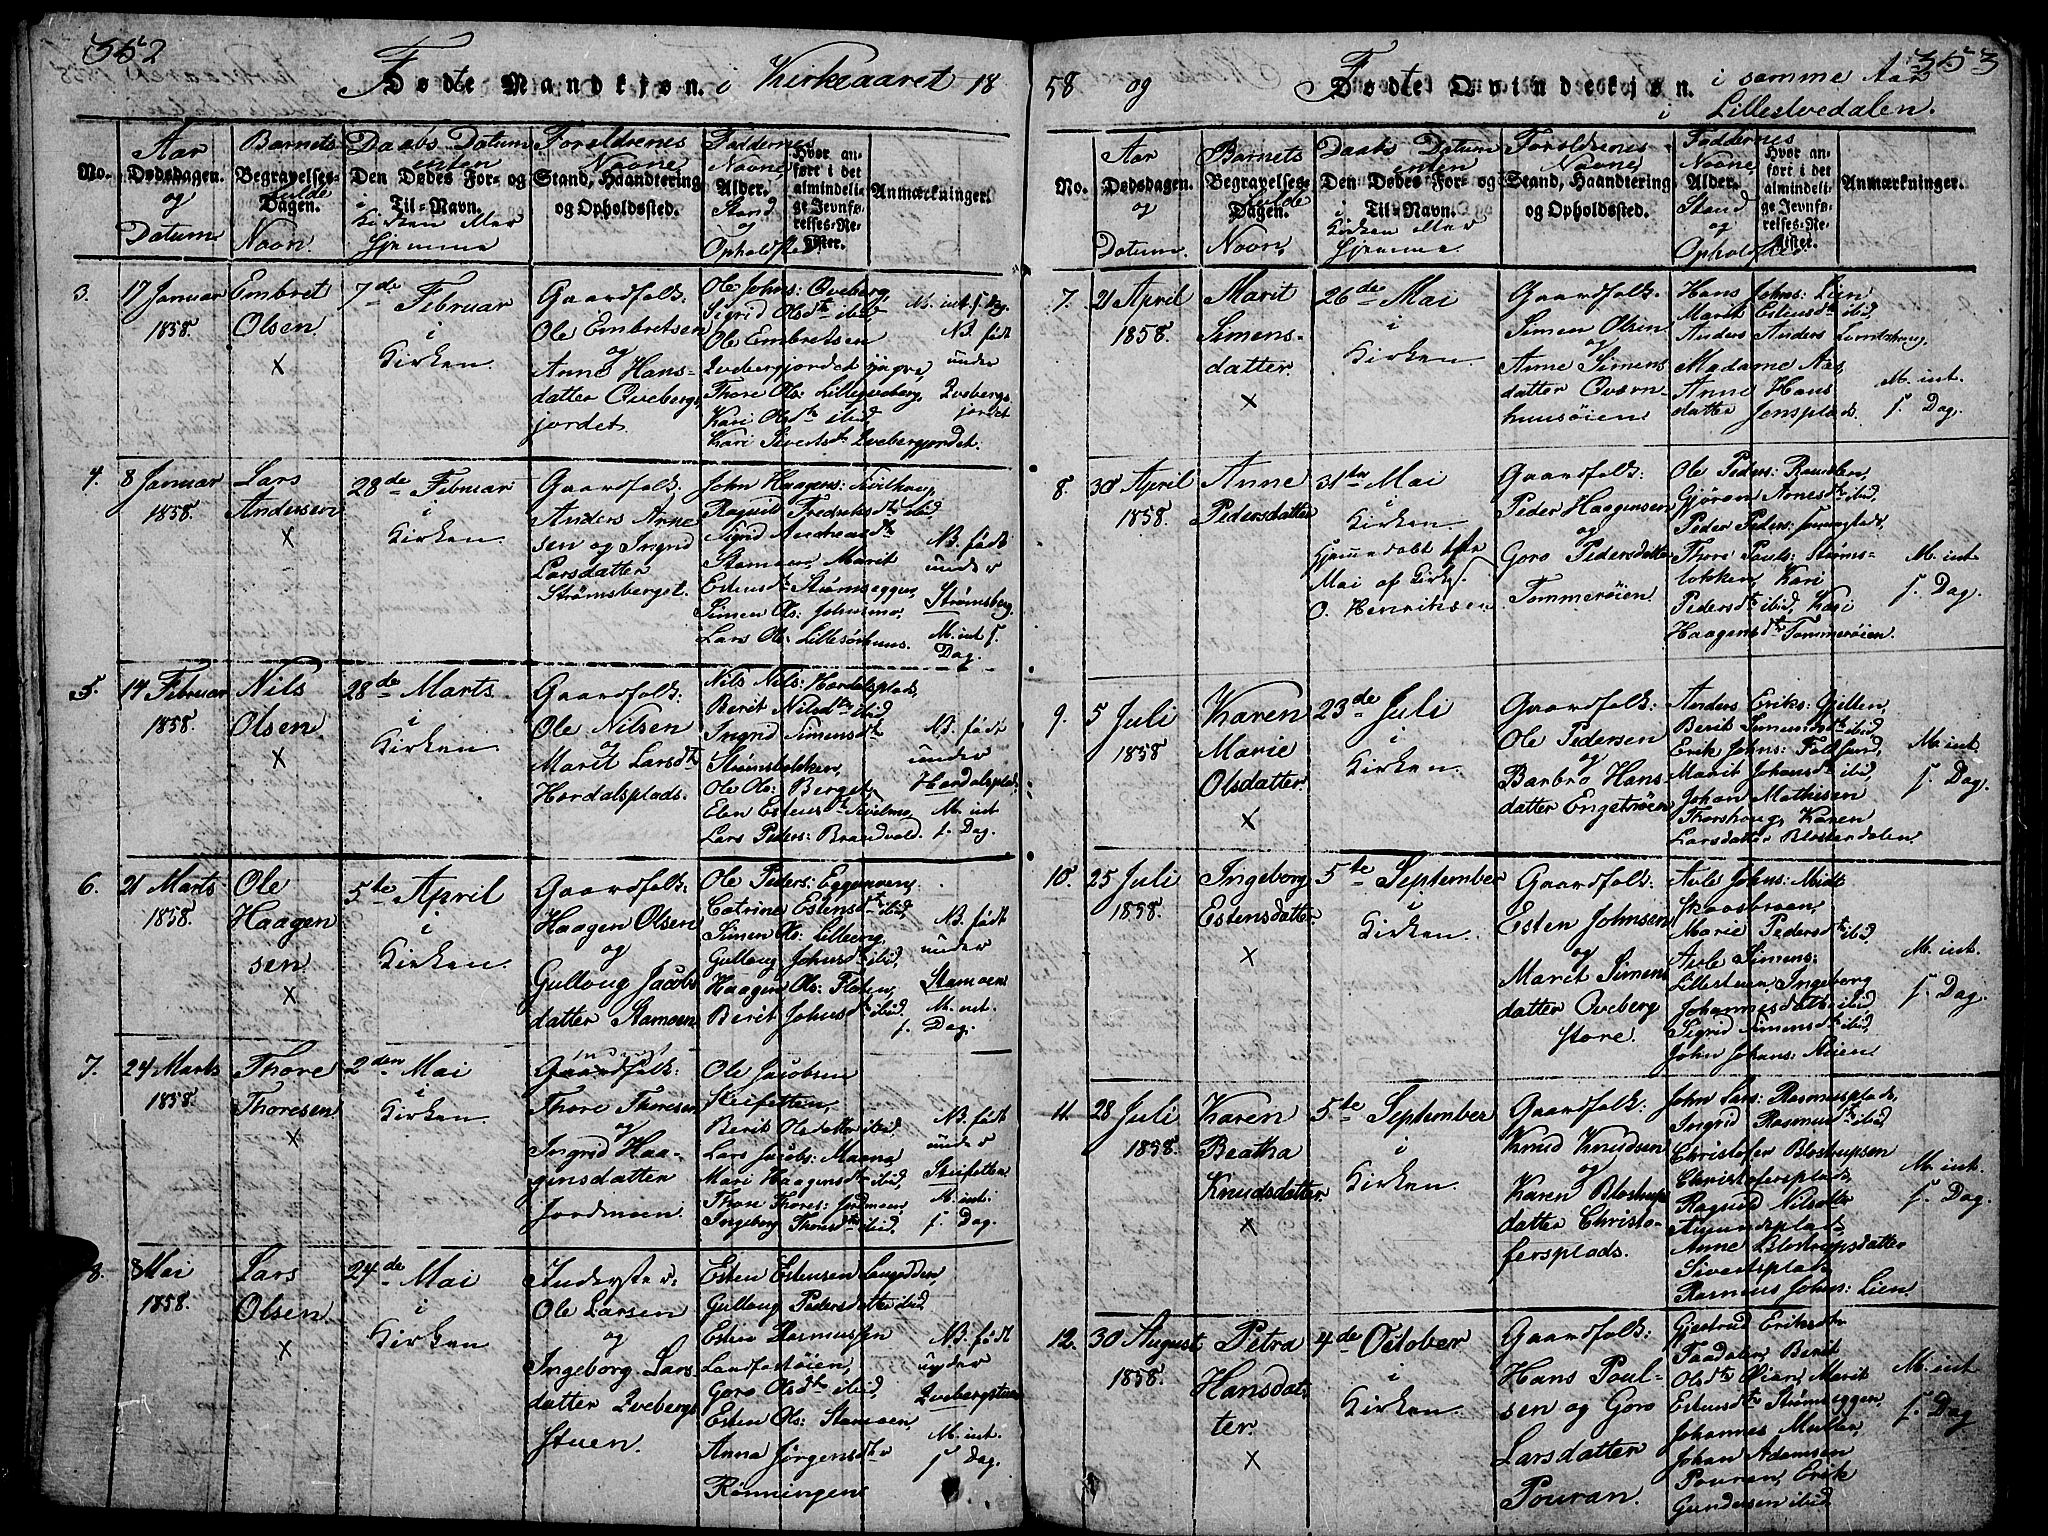 352
Fødte Mandkjøn. i Kirkeaaret 18
No.
Aar
Dødsdagen.
og
Datum
Barnets
Begravelses-
fulde
Dagen.
Navn.
Daabs Datum
enten
Den Dødes For- og
i
Til-Navn.
Kirken eller
Hjemme
Foreldrenes
Navne,
Stand, Haandtering
og Opholdssted.
Faddernes
Navne,
Alder.
Stand
og
Opholdsted.
Hvor an-
ført i det
almindeli-
ge Jevnfø-
relses-Re-
gister.
Anmærkninger.
3.
17 Januar
1858.
Embret
Olsen
×
7de Februar
i
Kirken.
Gaardfolk:
Ole Embretsen
og
Anne Hans-
datter Qvebergs
jordet.
Ole Johns: Qveberg
Sigrid Olsdtr ibid
Ole Embretsen
Qvebergjordet yngre,
Thore Ols: Lilleqveberg,
Kari Olsdtr ibid
Kari Sivertsdtr Qvebergjordet.
M. int. f. Dag.
NB. født
under
Qvebergs
jordet
4.
8 Januar
1858.
Lars
Andersen
×
28de Februar
i
Kirken.
Gaardfolk:
Anders Arne
sen og Ingrid
Larsdatter
Strømsberget.
John Haagens:
Ragnild Fredriksdtr ibid,
Sigrid Andreasdtr
Stamoen, Marit
Estensdtr Strømseggen,
Simen Ols: Johnsmo,
Lars Ols: Lillesørhuus.
NB. født
under
Strømsberg.
M. int. f.
Dag.
5.
14 Februar
1858.
Nils
Olsen
×
28de Marts
i
Kirken.
Gaardfolk:
Ole Nilsen
og
Marit Larsdtr
Hordalsplads.
Nils Nils: Hordalsplads,
Berit Nilsdtr ibid,
Ingrid Simensdtr
Strømsbakken,
Ole Ols: Berget,
Elen Estensdtr
Lars Peders: Brandvold.
NB. født
under
Hordalsplads
M. int
f. Dag.
6.
21 Marts
1858.
Ole
Haagen
sen
×
5te April
i
Kirken.
Gaardfolk:
Haagen Olsen
og
Gulloug Jacobs
datter Stamoen
Ole Peders: Eggemoen,
Catrine Estensdtr ibid,
Simen Ols: Lilleeng,
Gulloug Johnsdtr ibid,
Haagen Ols: Floten,
Berit Johnsdtr ibid.
NB. født
under
Stamoen
M. int.
f. Dag.
7.
24 Marts
1858.
Thore
Thoresen
×
2den Mai
i
Kirken.
Gaardfolk:
Thore Thoresen
og
Ingrid Haa-
gensdatter
Jordmoen.
Ole Jacobsen
Skeifetten,
Berit Olsdatter ibid,
Lars Jacobs: Maana,
Mari Haagensdtr ibid,
Thore Thores: Jordmoen,
Ingeborg Thoresdtr ibid.
NB. født
under
Skeifetten
M. int.
f. Dag.
8.
8 Mai
1858.
Lars
Olsen
×
24de Mai
i
Kirken.
Inderster:
Ole Larsen
og
Ingeborg Lars
datter Qvebergs
stuen.
Esten Estensen Langodden,
Gulloug Pedersdatter ibid,
Esten Rasmussen
Landfastøien,
Goro Olsdtr ibid,
Esten Ols: Stamoen,
Anna Jørgensdtr
Rønningen
NB. født
under
Qvebergstuen
M. int.
f. Dag.
58 og Fødte Qvindekjøn. i samme Aar 353
i Lillestvedalen.
No.
Aar
Dødsdagen.
og
Datum.
Barnets
Begravelses-
fulde
Dagen.
Navn.
Daabs Datum
enten
Den Dødes For- og
i
Til-Navn.
Kirken eller
Hjemme.
Foreldrenes
Navne,
Stand, Haandtering
og Opholdssted.
Faddernes
Navne,
Alder.
Stand
og
Opholdsted.
Hvor an-
ført i det
almindeli-
ge Jevnfø-
relses-Re-
gister.
Anmærkninger.
7.
21 April
1858.
Marit
Simens-
datter.
×
26de Mai
i
Kirken.
Gaardfolk.
Simen Olsen
og
Anne Simens
datter Qværn-
huusøien
Hans Johns: Lien,
Marit Estensdtr ibid,
Anders Anders
Madame Aas
Anne Hans
datter Jensplads.
M. int.
f. Dag.
8.
30 April
1858.
Anne
Pedersdatter
31te Mai
i
Kirken
Hjemmedøbt 1ste
Mai af Kirks.
O. Henriksen
Gaardfolk:
Peder Haagensen
og
Goro Pedersdatter
Tommerøien
Ole Peders:
Gjøran Arnesdtr ibid,
Peder Peders:
Thore Pouls: Strøms-
lokken, Kari
Pedersdtr ibid, Kari
Haagensdtr Tommerøien.
M. int
f. Dag.
9.
5 Juli
1858
Karen
Marie
Olsdatter.
×
23de Juli
i
Kirken.
Gaardfolk:
Ole Pedersen
og
Barbro Hans
datter Engetrøen
Anders Eriks: Gjelten,
Berit Simensdtr ibid,
Erik Johns: Foldsund,
Marit Johansdtr ibid,
Johan Mathisen
Thorshoug, Karen
Larsdatter Klosterdalen.
M. int.
f. Dag.
10.
25 Juli
1858.
Ingeborg
Estensdatter.
×
5te September
i
Kirken.
Gaardfolk:
Esten Johnsen
og
Marit Simens
datter Qveberg
store.
Asle Johns: Midt
skaasbraaen,
Marie Pedersdtr ibid,
Asle Simens:
Lillesteen, Ingeborg
Johannesdatter ibid,
Sigrid Simensdtr ibid,
John Johans: Steien
M. int.
f. Dag.
11.
28 Juli
1858.
Karen
Beatha
Knudsdatter.
×
5te September
i
Kirken.
Gaardfolk:
Knud Knudsen
og
Karen Blostrups
datter Christo-
fersplads.
John Lars: Rasmusplads,
Ingrid Rasmusdtr ibid,
Christofer Blostrupsen
Christofersplads,
Ragnild Nilsdtr
Amundsplads
Anne Blostrupsdatter
Sivertsplads
Rasmus Johns: Lien.
M. int
f. Dag.
12.
30 August
1858.
Petra
Hansdat
ter.
×
4de October
i
Kirken.
Gaardfolk:
Hans Poul-
sen og Goro
Larsdatter
Pouran.
Gjertrud Eriksdtr
Taadalen, Berit
Olsdtr Øian, Marit
Estensdtr Strømseggen
Johannes Muller,
Johan Adamsen
Pouran, Erik
Gundersen ibid.
M. int
f. Dag